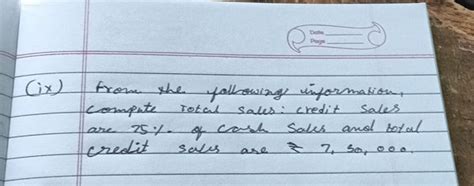 Date
Page
(ix) From the following information,
compute Total Sales: credit Sales
are 75% of cash Sales and total
credit sales are ₹ 7,50,000.